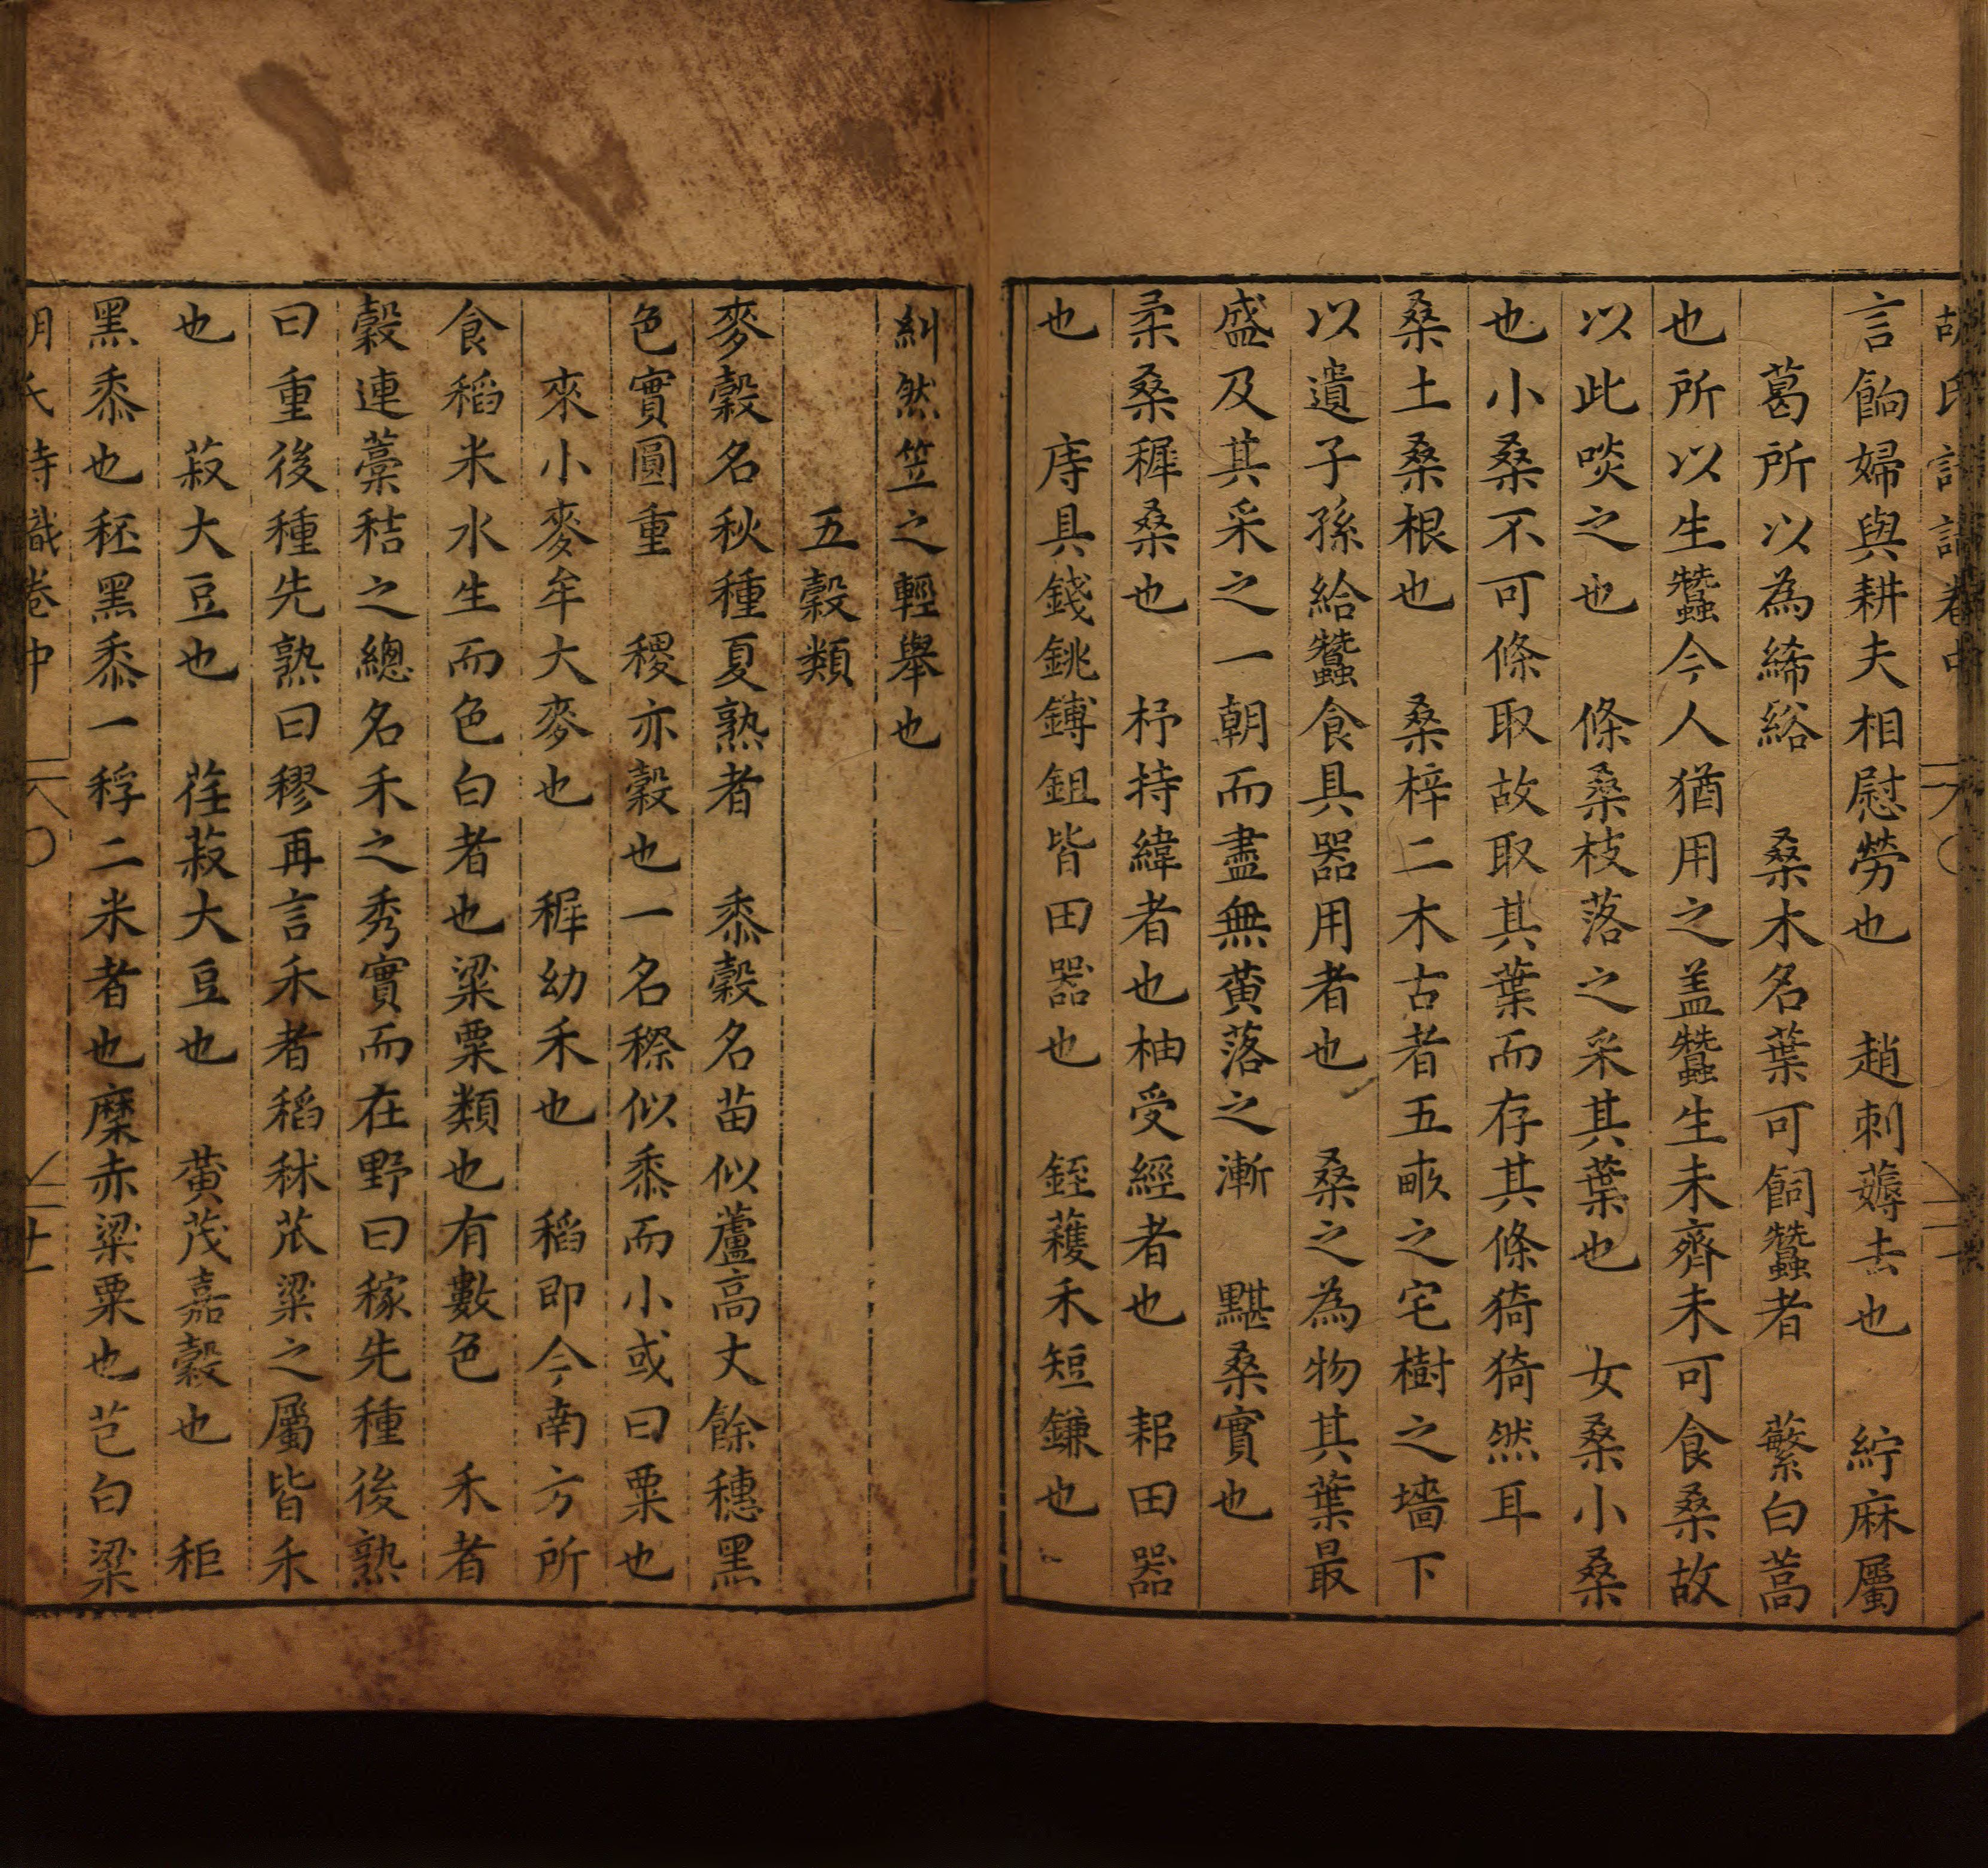 言餉婦與耕夫相慰勞也　趙刺薅去也　紵麻屬
葛所以為絺綌　桑木名葉可飼蠶者　蘩白蒿
也所以生蠶今人猶用之盖蠶生未齊未可食桑故
以此啖之也　條桑枝落之采其葉也　女桑小桑
也小桑不可條取故取其葉而存其條猗猗然耳
桑土桑根也　桑梓二木古者五畝之宅樹之墻下
以遺子孫給蠶食具器用者也　桑之為物其葉最
盛及其采之一朝而盡無黃落之漸　黮桑實也
柔桑穉桑也　杼持緯者也柚受經者也　耜田器
也　庤具錢銚鎛鉏皆田器也　銍穫禾短鎌也
糾然笠之輕舉也
五穀類
麥穀名秋種夏熟者　黍穀名苗似蘆高丈餘穗黑
色實圓重　稷亦穀也一名穄似黍而小或曰粟也
來小麥牟大麥也　穉幼禾也　稻即今南方所
食稻米水生而色白者也粱粟類也有數色　禾者
穀連藁秸之總名禾之秀實而在野曰稼先種後熟
曰重後種先熟曰穋再言禾者稻秫苽粱之屬皆禾
也　菽大豆也　荏菽大豆也　黃茂嘉穀也　秬
黑黍也秠黑黍一稃二米者也穈赤粱粟也芑白粱